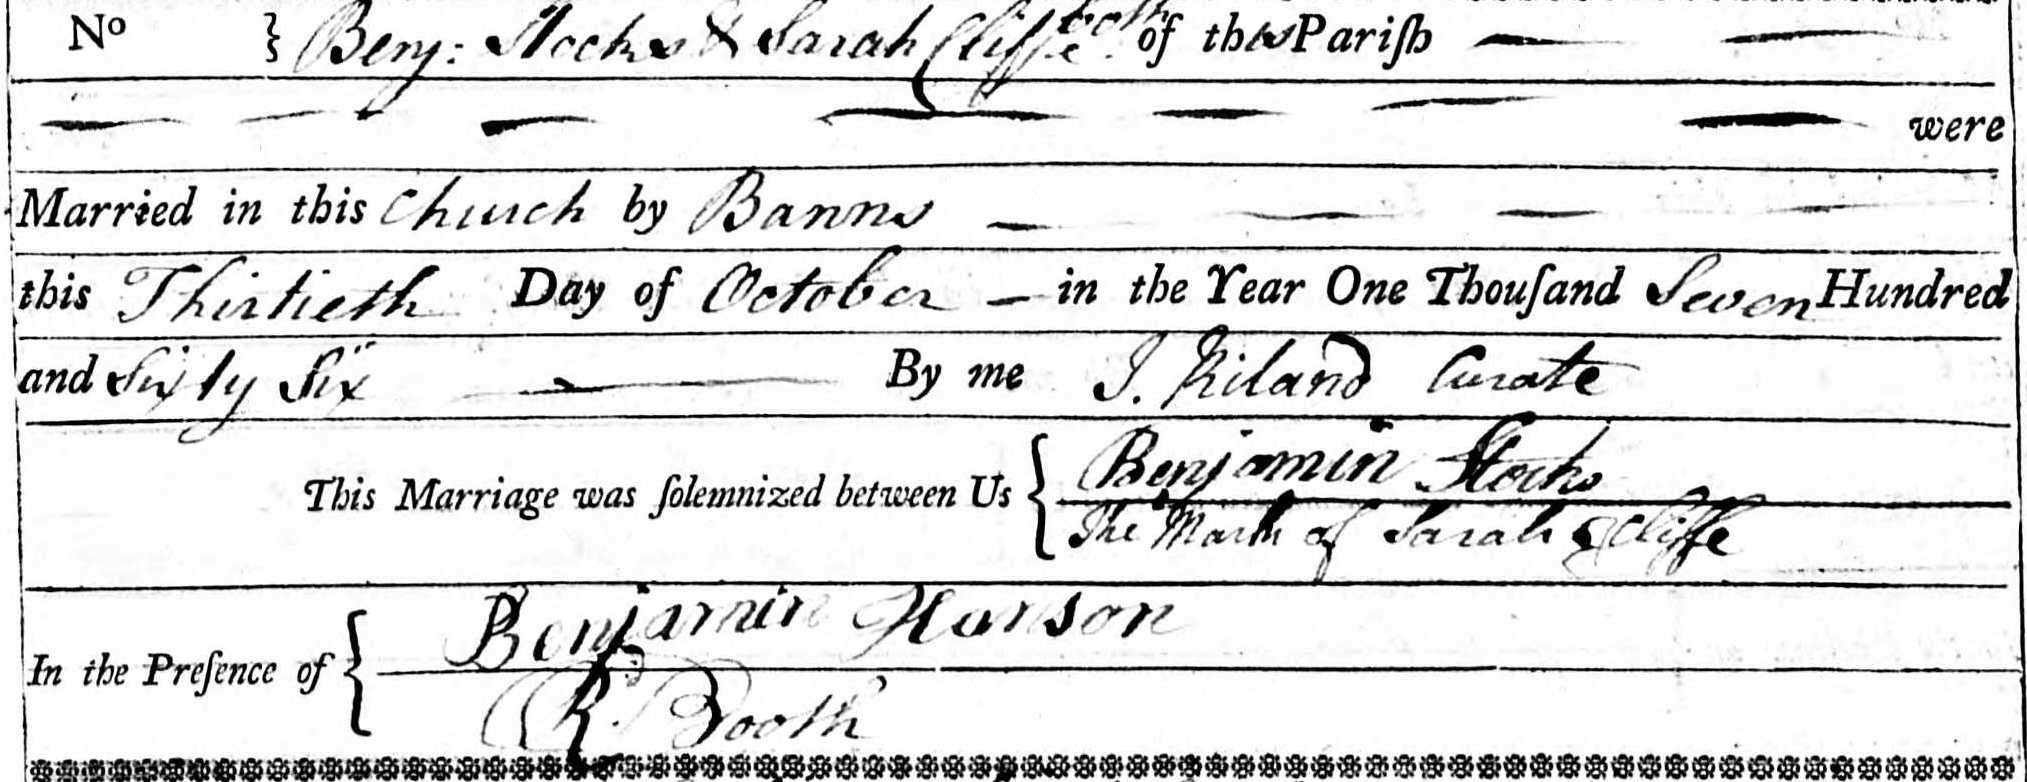 No } Benj: Stocks & Sarah Cliffe both of this Pariſh
were
Married in this Church by Banns
this Thirtieth Day of October in the Year One Thouſand Seven Hundred
and Sixty Six By me J. Riland Curate
This Marriage was ſolemnized between Us { Benjamin Stocks
The Mark of Sarah Cliffe
In the Preſence of { Benjamin Hanson
R. Booth